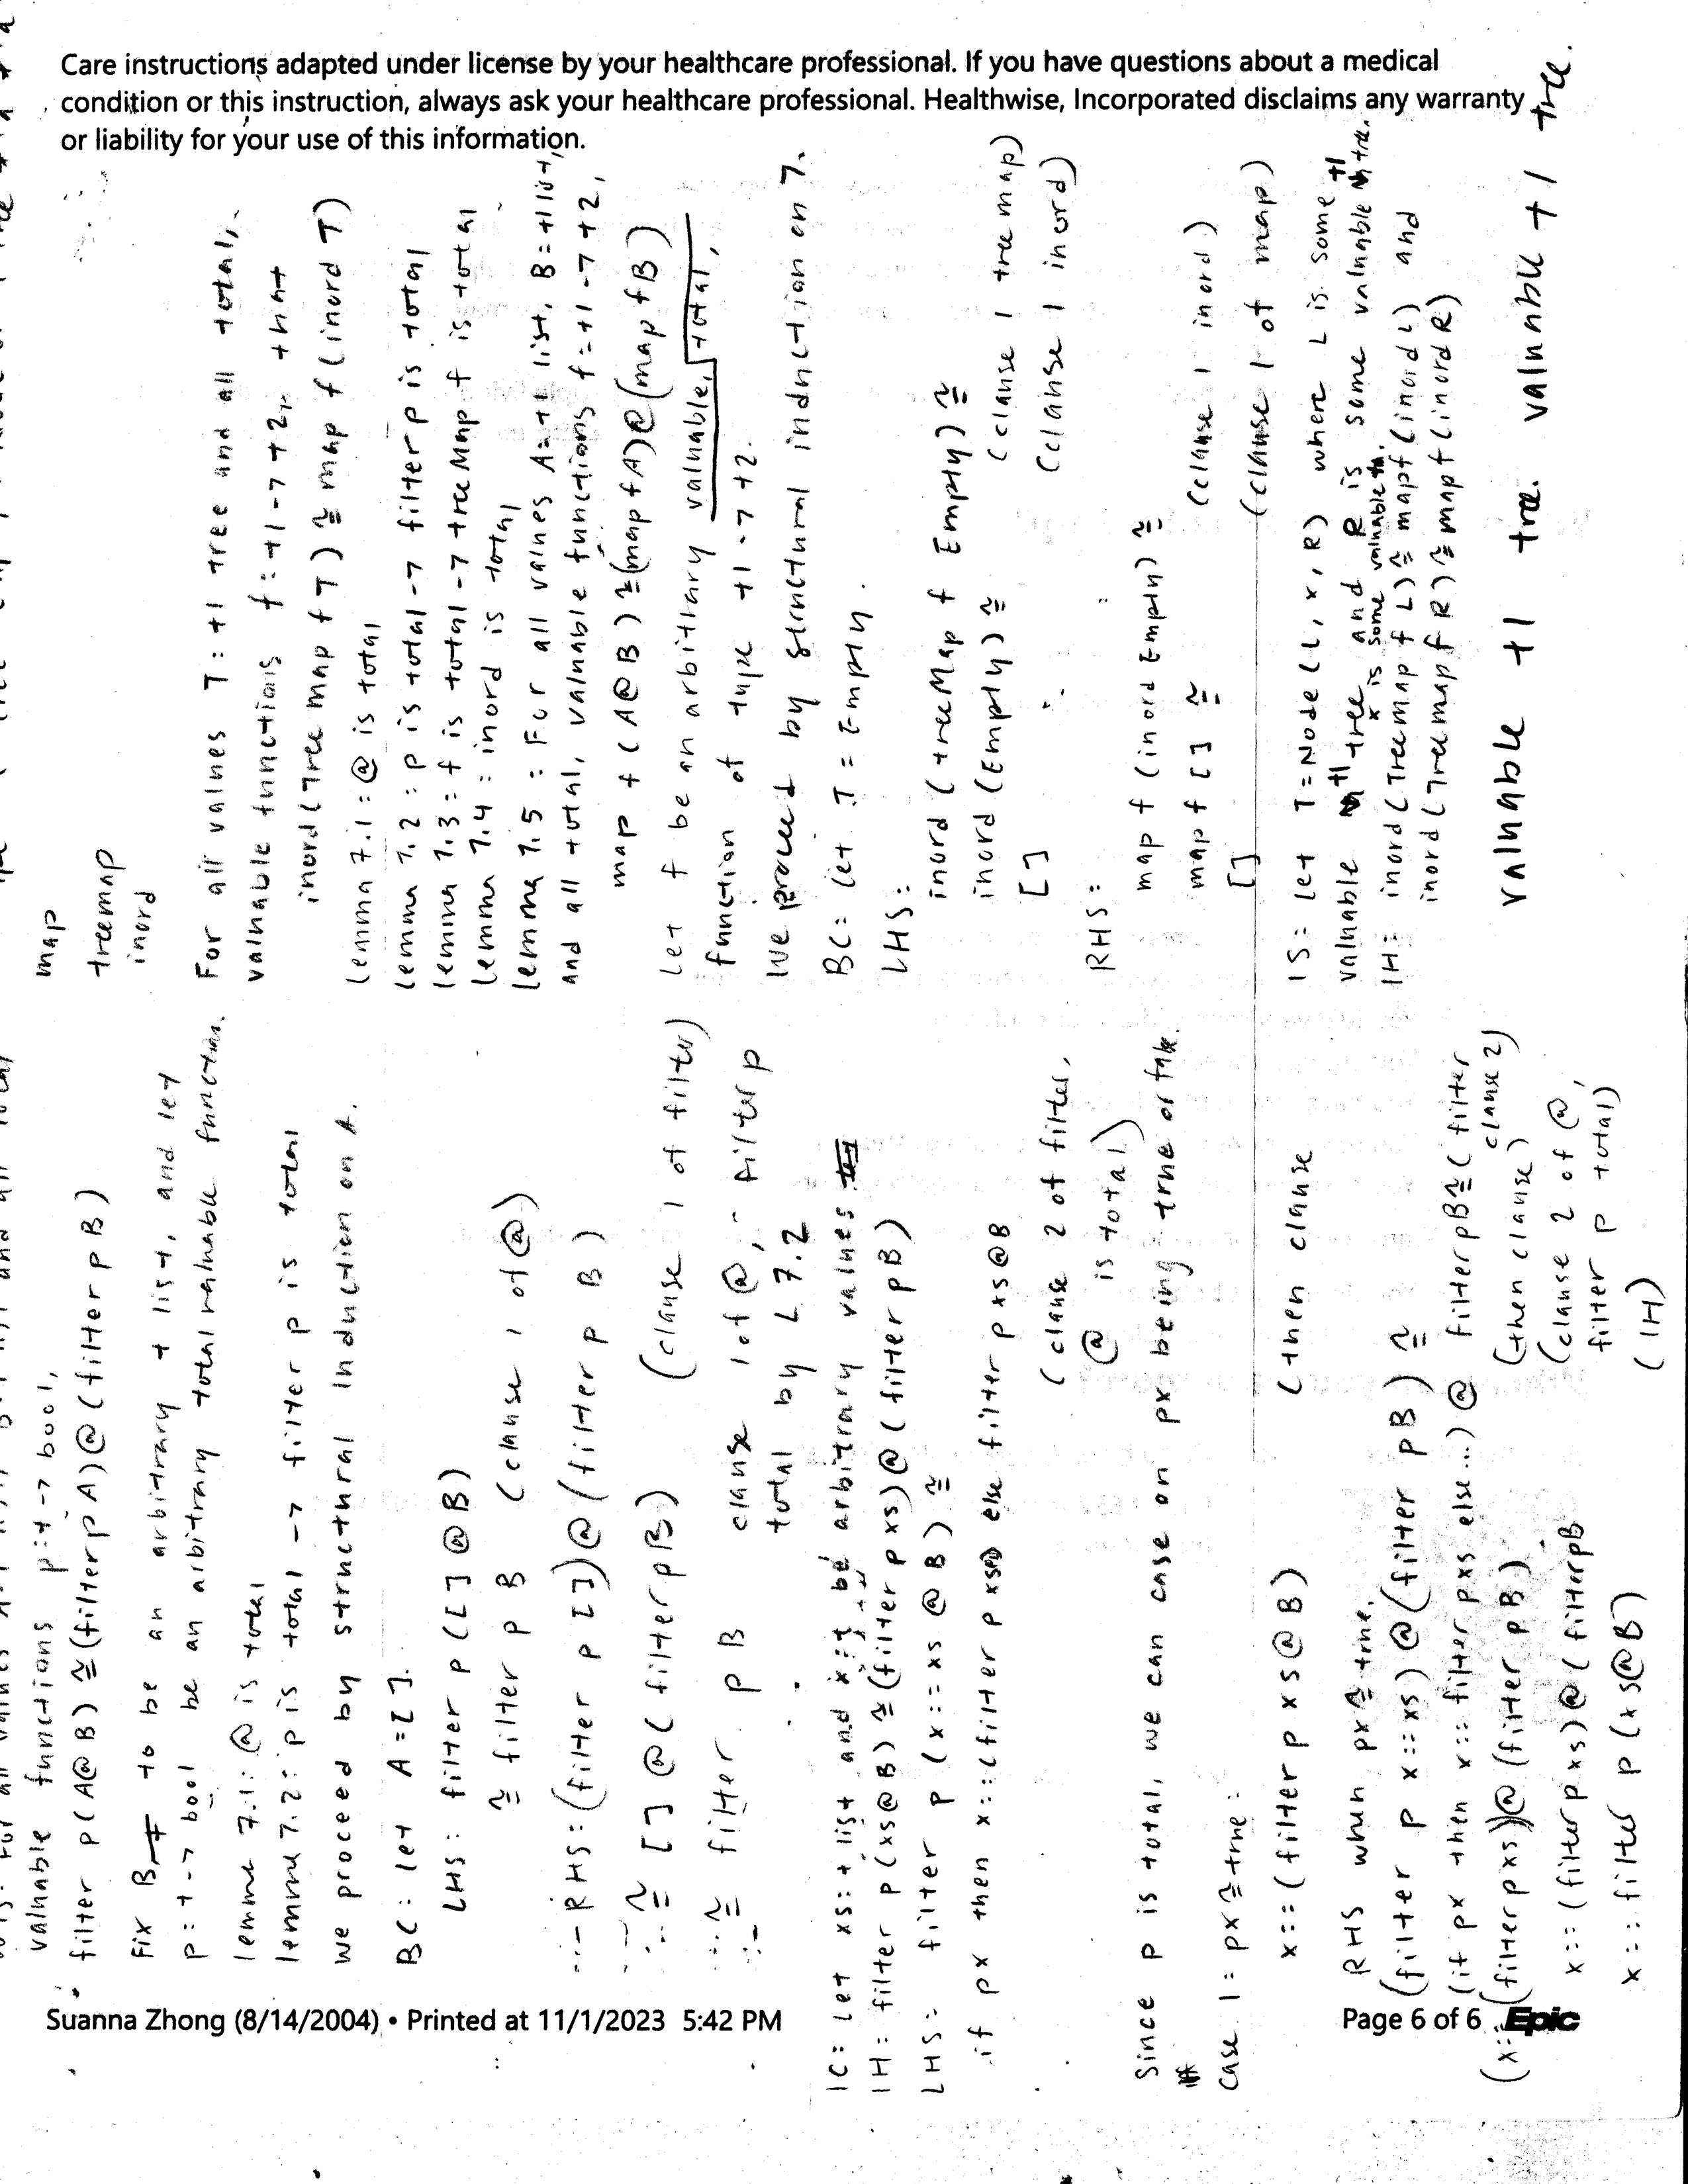 Care instructions adapted under license by your healthcare professional. If you have questions about a medical
condition or this instruction, always ask your healthcare professional. Healthwise, Incorporated disclaims any warranty
or liability for your use of this information.
valuable functions p: t -> bool,
filter p(A@B) ≅ (filter p A)@(filter p B)
Fix B to be an arbitrary t list, and let
p: t -> bool be an arbitrary total valuable function.
lemma 7.1: @ is total
lemma 7.2: p is total -> filter p is total
we proceed by structural induction on A.
BC: let A = [].
LHS: filter p ([]@B)
≅ filter p B (clause 1 of @)
RHS: (filter p [])@(filter p B)
≅ []@(filter p B) (clause 1 of filter)
≅ filter p B clause 1 of @, filter p
total by L 7.2
IC: Let xs: t list and x: t be arbitrary values
IH: filter p (xs@B) ≅ (filter p xs)@(filter p B)
LHS: filter p (x::xs @ B) ≅
if px then x::(filter p xs@B else filter p xs@B
(clause 2 of filter,
@ is total)
Since p is total, we can case on px being true or false.
Case 1: px ≅ true:
x::(filter p xs@B) (then clause
RHS when px ≅ true,
(filter p x::xs)@(filter p B) ≅
(if px then x::filter p xs else...)@ filter p B ≅ (filter
clause 2)
(x::(filter p xs))@(filter p B) (then clause)
x::(filter p xs)@(filter p B (clause 2 of @,
filter p total)
x::filter p (xs@B) (IH)
map
treemap
inord
For all values T: t1 tree and all total,
valuable functions f: t1 -> t2, that
inord(treemap f T) ≅ map f (inord T)
lemma 7.1: @ is total
lemma 7.2: p is total -> filter p is total
lemma 7.3: f is total -> treeMap f is total
Lemma 7.4: inord is total
lemma 7.5: For all values A: t1 list, B: t1 list,
and all total, valuable functions f: t1 -> t2,
map f (A@B) ≅ (map f A)@(map f B)
Let f be an arbitrary valuable, total,
function of type t1 -> t2.
We proceed by structural induction on T.
BC: let T = Empty.
LHS:
inord (treeMap f Empty) ≅
inord (Empty) ≅ (clause 1 treemap)
[] (clause 1 inord)
RHS:
map f (inord Empty) ≅
map f [] ≅ (clause 1 inord)
[] (clause 1 of map)
IS: let T = Node(L, x, R) where L is some
valuable t1 tree and R is some valuable t1 tree.
x is some valuable t1.
IH: inord (Treemap f L) ≅ map f (inord L) and
inord (Treemap f R) ≅ map f (inord R)
valuable t1 tree. valuable t1 tree.
Suanna Zhong (8/14/2004) • Printed at 11/1/2023 5:42 PM
Page 6 of 6 Epic